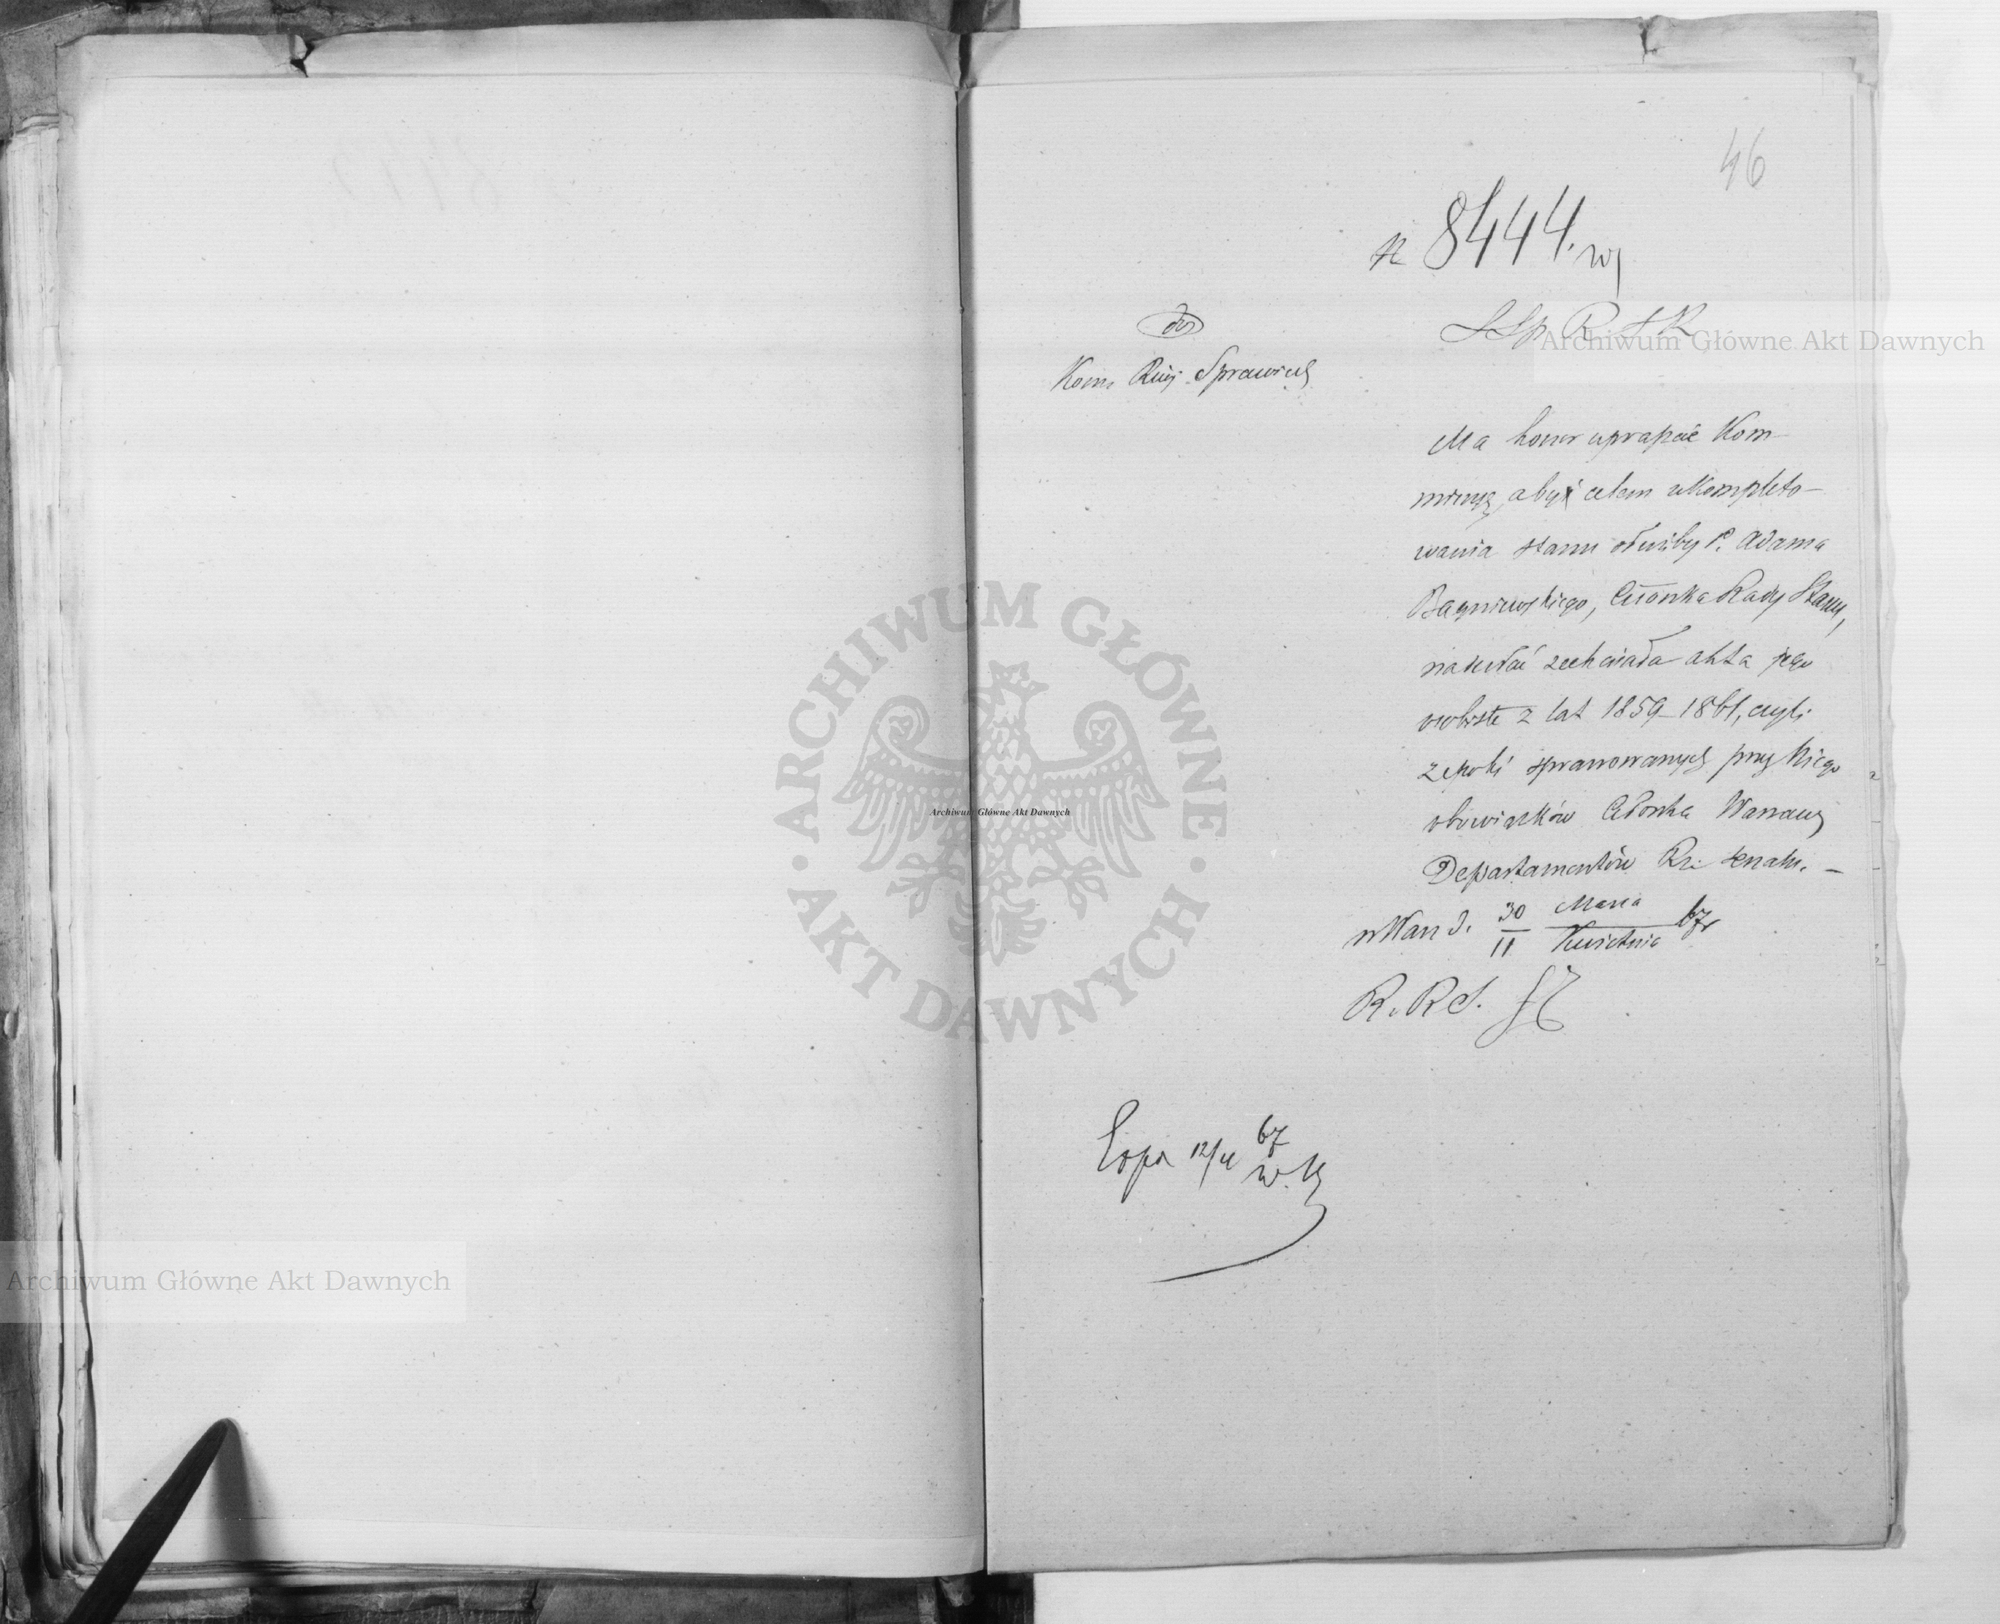 46
N 8444. w
S Sp R S K
do
Kom. Rząj Sprawied
Ma honor uprasza Kom
missyą, aby celem ukompleto-
wania stanu służby P. Adama
Bagniewskiego, Członka Rady Stanu,
nadesłać zechciała akta jego
osobiste z lat 1859-1861, czyli
z epoki sprawowanych przez Niego
obowiązków Członka Warsaws
Departamentów Rz: Senatu. -
w War d. 30/11 Marca/Kwietnia 67 r
R. R S.
Expd 12/4 67
w. K
ARCHIWUM GŁÓWNE AKT DAWNYCH
Archiwum Główne Akt Dawnych
Archiwum Główne Akt Dawnych
Archiwum Główne Akt Dawnych